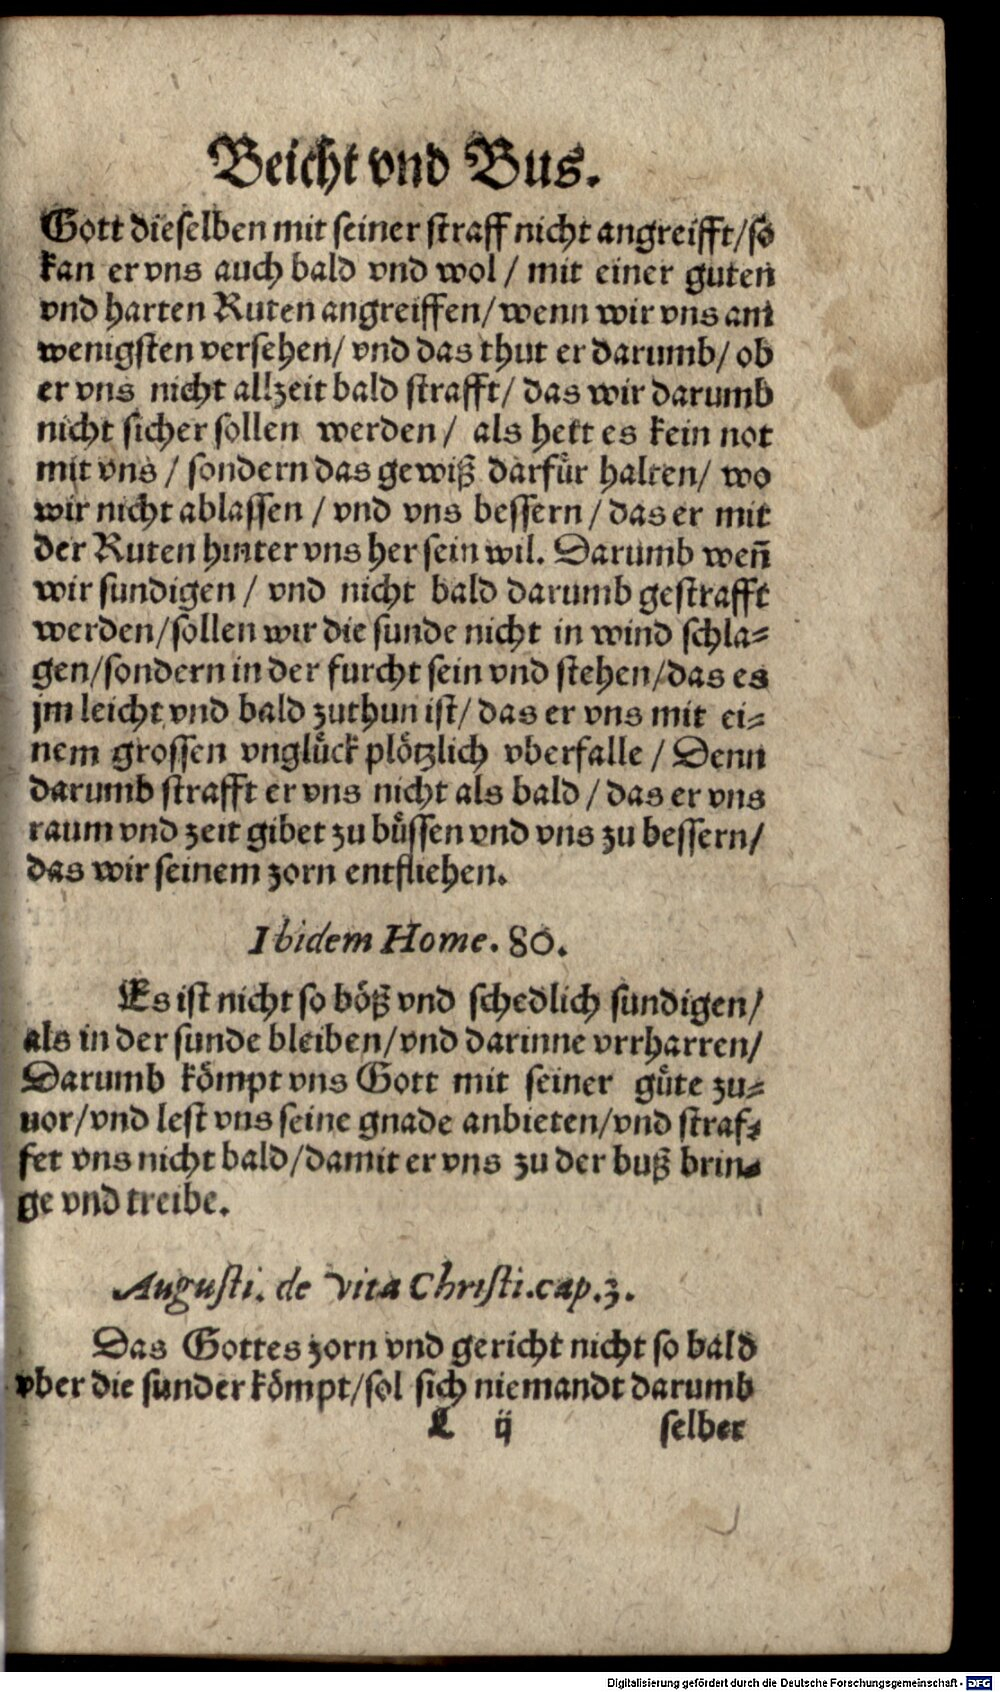 Beicht vnd Bus.
Gott dieselben mit seiner straff nicht angreifft/so
kan er vns auch bald vnd wol / mit einer guten
vnd harten Ruten angreiffen/wenn wir vns am
wenigsten versehen/ vnd das thut er darumb/ ob
er vns nicht allzeit bald strafft/ das wir darumb
nicht sicher sollen werden/ als hett es kein not
mit vns / sondern das gewiß darfür halten/ wo
wir nicht ablassen / vnd vns bessern / das er mit
der Ruten hinter vns her sein wil. Darumb weñ
wir sundigen / vnd nicht bald darumb gestrafft
werden/sollen wir die sunde nicht in wind schla⸗
gen/sondern in der furcht sein vnd stehen/das es
jm leicht vnd bald zuthun ist/ das er vns mit ei⸗
nem grossen vnglück plötzlich vberfalle / Denn
darumb strafft er vns nicht als bald / das er vns
raum vnd zeit gibet zu büssen vnd vns zu bessern/
das wir seinem zorn entfliehen.
Ibidem Home. 80.
Es ist nicht so böß vnd schedlich sundigen/
als in der sunde bleiben/vnd darinne vrrharren/
Darumb kömpt vns Gott mit seiner güte zu⸗
uor/vnd lest vns seine gnade anbieten/vnd straf⸗
fet vns nicht bald/damit er vns zu der buß brin⸗
ge vnd treibe.
Augusti. de vita Christi.cap.3.
Das Gottes zorn vnd gericht nicht so bald
vber die sunder kömpt/sol sich niemandt darumb
L ij selber
Digitalisierung gefördert durch die Deutsche Forschungsgemeinschaft - DFG